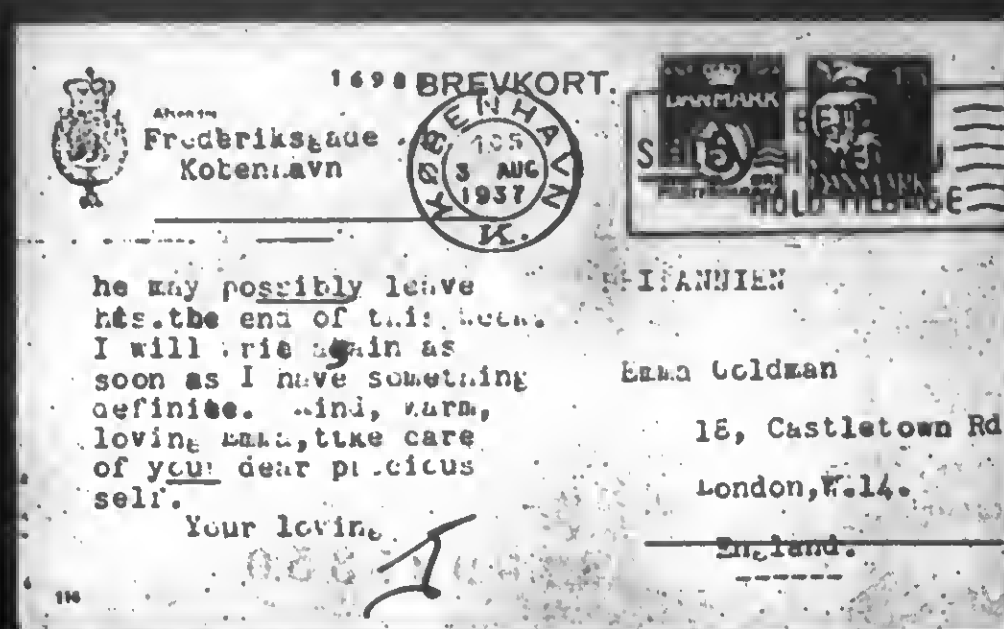 1698 BREVKORT.
Afsender
Frederiksgade
København
KØBENHAVN
3 AUG
1937
K.
DANMARK
he may possibly leave
hts.the end of this week.
I will again as
soon as I have something
definite. Kind, warm,
loving Emma,take care
of your dear precious
self.
Your loving
116
Emma Goldman
18, Castletown Rd
London,W.14.
England.